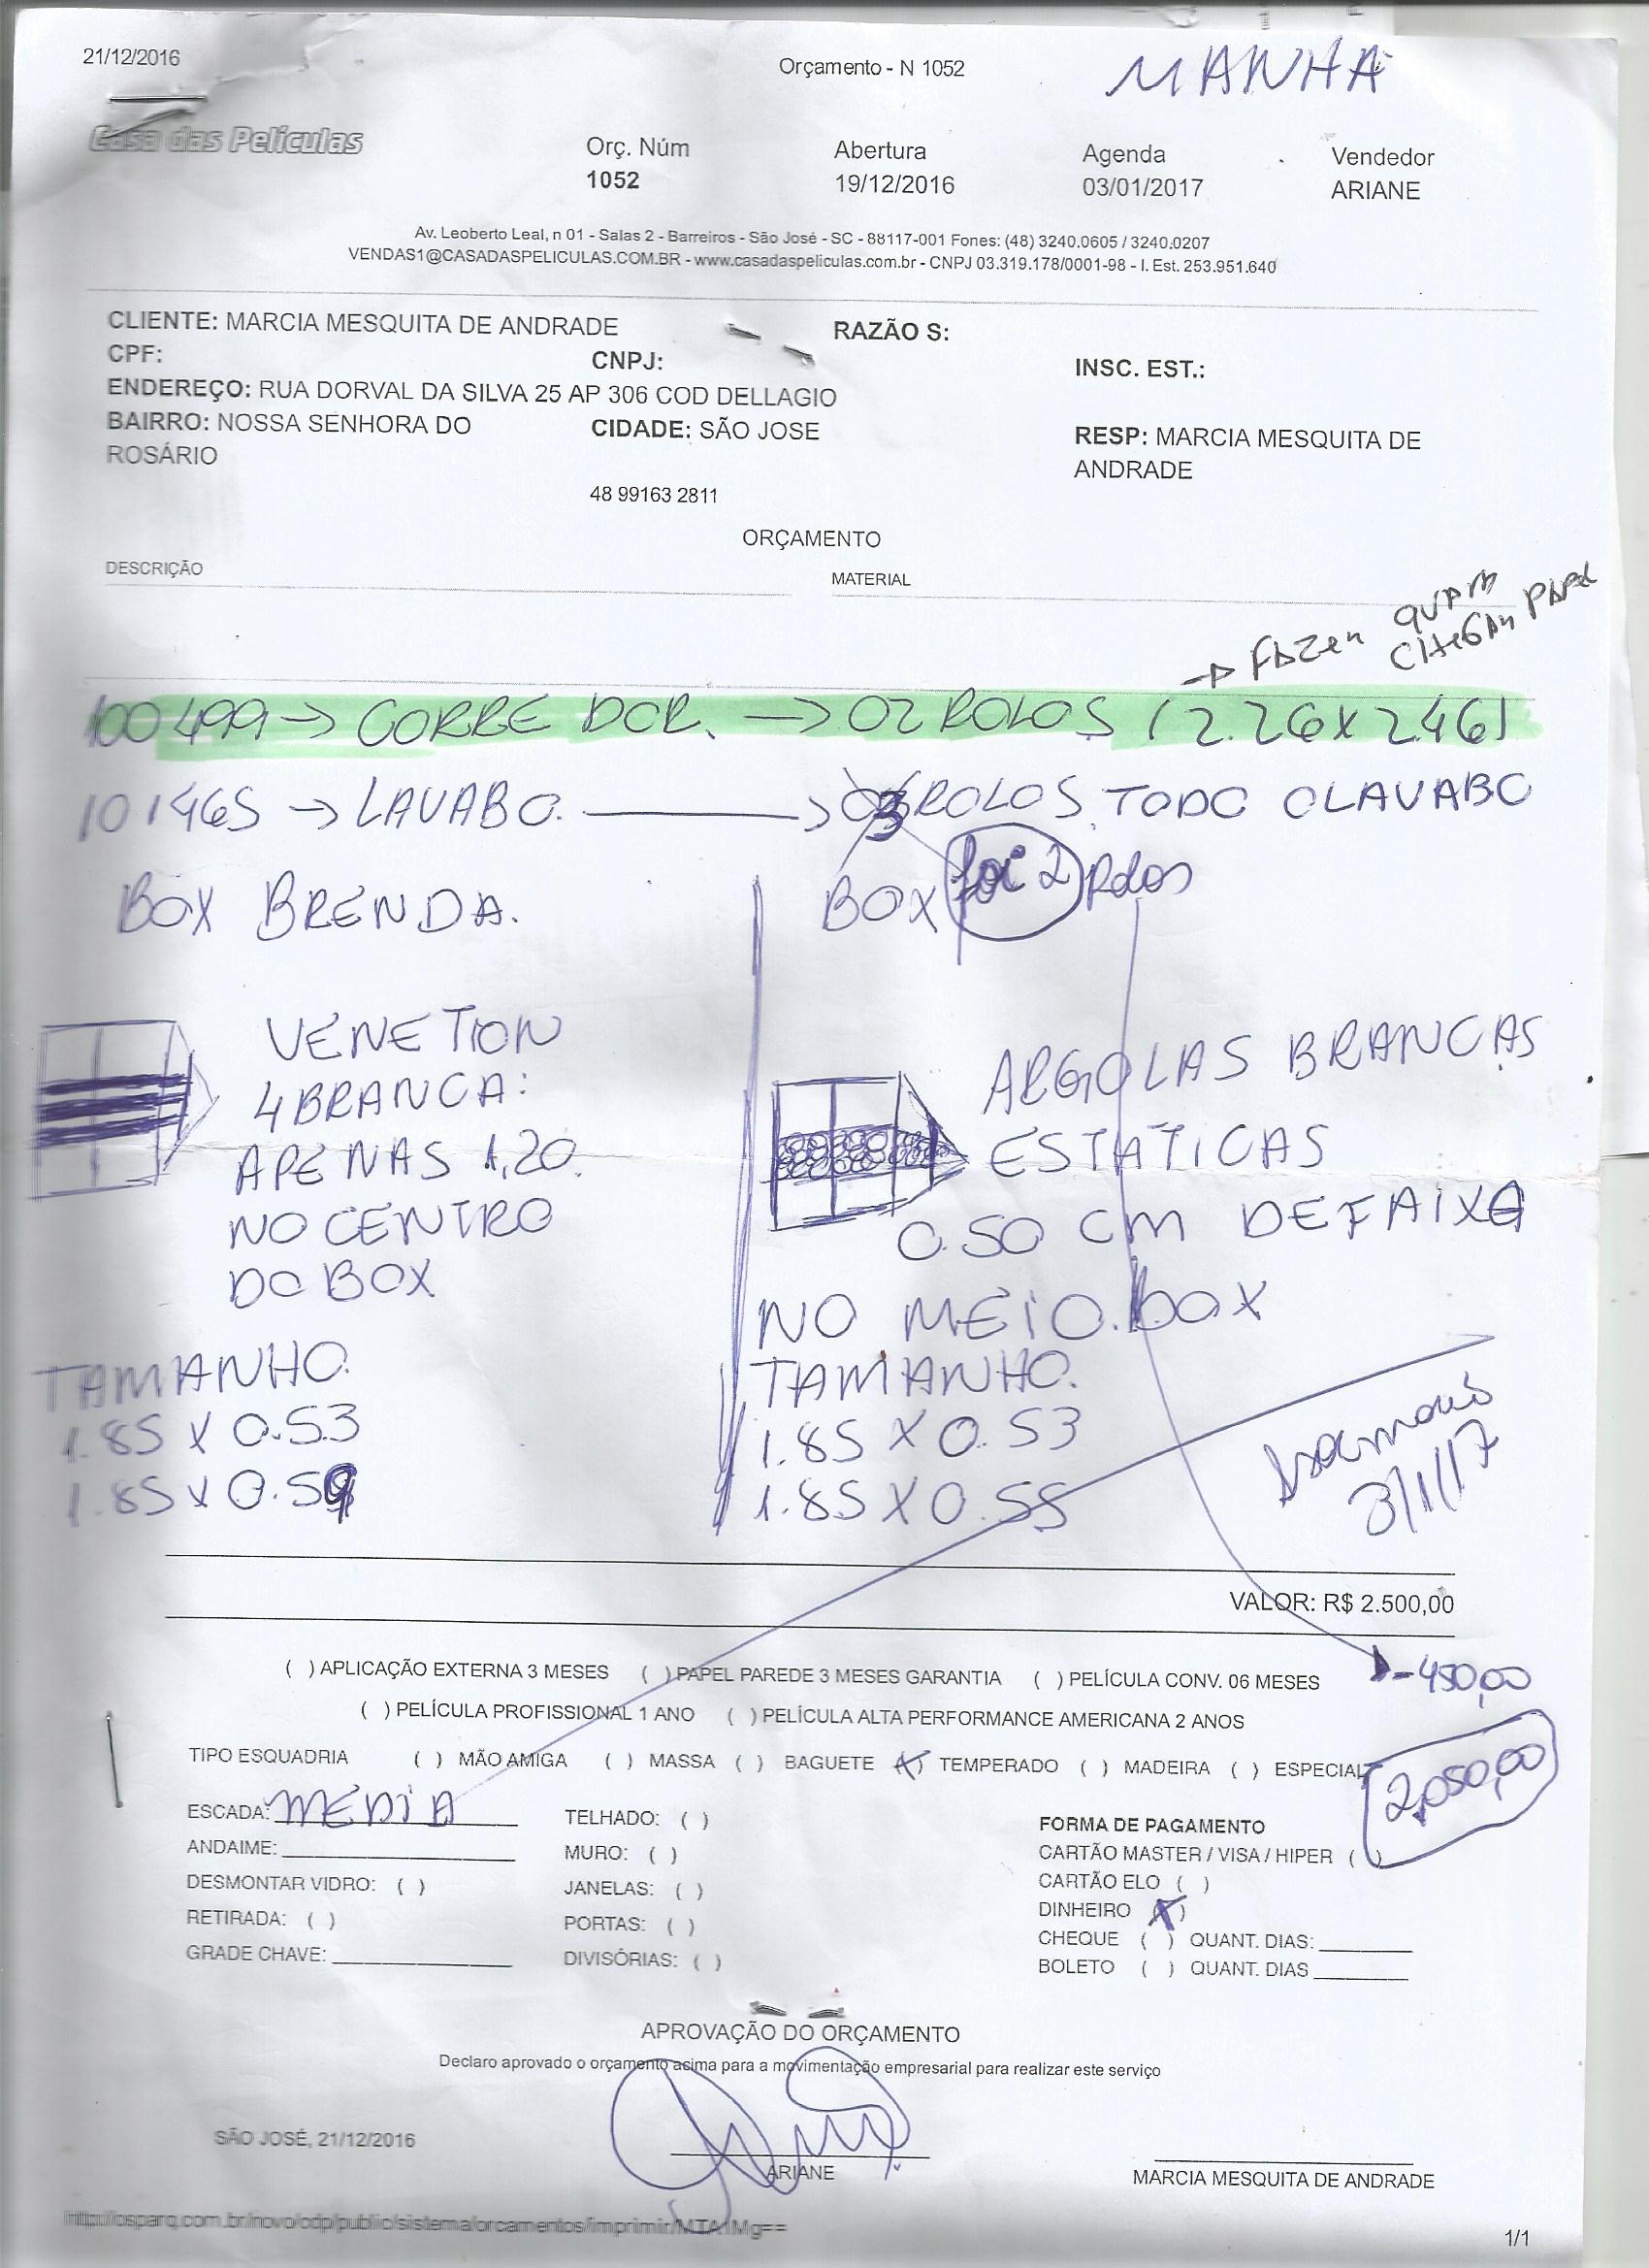 21/12/2016
Orçamento - N 1052
MANHÃ
Casa das Películas
Orç. Núm
1052
Abertura
19/12/2016
Agenda
03/01/2017
Vendedor
ARIANE
Av. Leoberto Leal, n 01 - Salas 2 - Barreiros - São José - SC - 88117-001 Fones: (48) 3240.0605 / 3240.0207
VENDAS1@CASADASPELICULAS.COM.BR - www.casadaspeliculas.com.br - CNPJ 03.319.178/0001-98 - I. Est. 253.951.640
CLIENTE: MARCIA MESQUITA DE ANDRADE
RAZÃO S:
CPF:
CNPJ:
INSC. EST.:
ENDEREÇO: RUA DORVAL DA SILVA 25 AP 306 COD DELLAGIO
BAIRRO: NOSSA SENHORA DO
ROSÁRIO
CIDADE: SÃO JOSE
RESP: MARCIA MESQUITA DE
ANDRADE
48 99163 2811
ORÇAMENTO
DESCRIÇÃO
MATERIAL
→ FAZER
CHEGAR PAPEL
100499 → CORREDOR. → 02 ROLOS (2.26 X 2.46)
101465 → LAVABO. → 03 ROLOS TODO O LAVABO
BOX BRENDA.
BOX foi 2 Rolos
VENETION
4 BRANCA:
APENAS 1,20.
NO CENTRO
DO BOX
TAMANHO.
1.85 X 0.53
1.85 X 0.59
ARGOLAS BRANCAS
ESTATICAS
0.50 cm DE FAIXA
NO MEIO. box
TAMANHO.
1.85 X 0.53
1.85 X 0.55
3/1/17
VALOR: R$ 2.500,00
- 450,00
2,050,00
( ) APLICAÇÃO EXTERNA 3 MESES ( ) PAPEL PAREDE 3 MESES GARANTIA ( ) PELÍCULA CONV. 06 MESES
( ) PELÍCULA PROFISSIONAL 1 ANO ( ) PELÍCULA ALTA PERFORMANCE AMERICANA 2 ANOS
TIPO ESQUADRIA ( ) MÃO AMIGA ( ) MASSA ( ) BAGUETE (X) TEMPERADO ( ) MADEIRA ( ) ESPECIAL
ESCADA: MEDIA
ANDAIME:
DESMONTAR VIDRO: ( )
RETIRADA: ( )
GRADE CHAVE:
TELHADO: ( )
MURO: ( )
JANELAS: ( )
PORTAS: ( )
DIVISÓRIAS: ( )
FORMA DE PAGAMENTO
CARTÃO MASTER / VISA / HIPER ( )
CARTÃO ELO ( )
DINHEIRO (X)
CHEQUE ( ) QUANT. DIAS:
BOLETO ( ) QUANT. DIAS
APROVAÇÃO DO ORÇAMENTO
Declaro aprovado o orçamento acima para a movimentação empresarial para realizar este serviço
SÃO JOSÉ, 21/12/2016
ARIANE
MARCIA MESQUITA DE ANDRADE
1/1